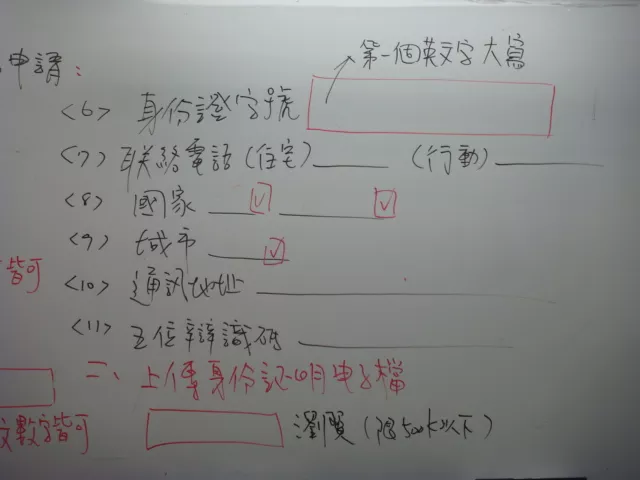 第一個英文字大寫
申請：
<6> 身份證字號
<7> 联絡電話(住宅)______ (行動)______
<8> 國家 ____ ____
<9> 城市 ____
皆可
<10> 通訊地址 ______
<11> 五位辩識碼 ______
二、上傳身份証明电子檔
文數字皆可
瀏覽(限500k以下)